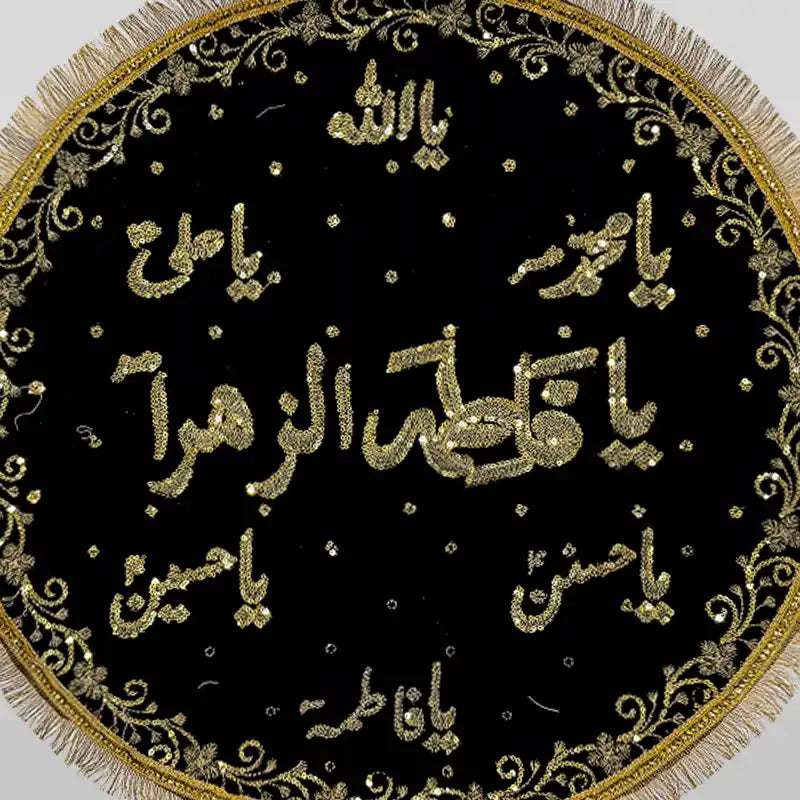 یا الله
یا محمد
یا علی
یا فاطمة الزهرا
یا حسن
یا حسین
یا فاطمة